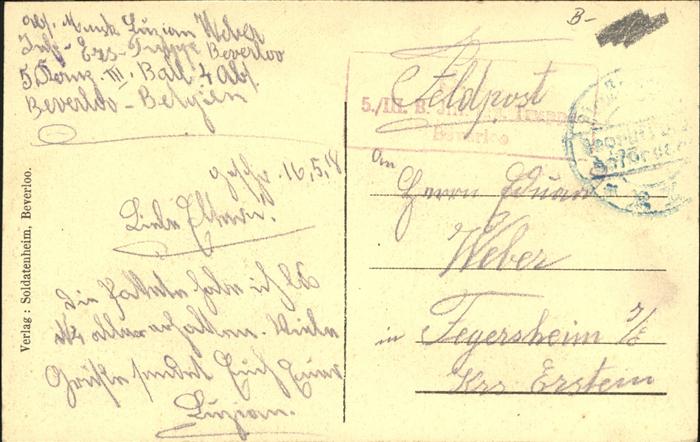 Abs. Musk. Luzian Weber
Inf-Ers-Truppe Beverloo
5 Komp. III. Batl 4 Abt.
Beverloo-Belgien
geschr. 16,5,18
Liebe Eltern!
Die Pakete habe ich bis
alle erhalten. Viele
Grüße sendet Euch Euer
Luzian.
Verlag: Soldatenheim, Beverloo.
B-
Feldpost
5./III. B. Inf. Truppe
Beverloo
An
Herrn Eduard
Weber
in Fegersheim i/E
Krs Erstein